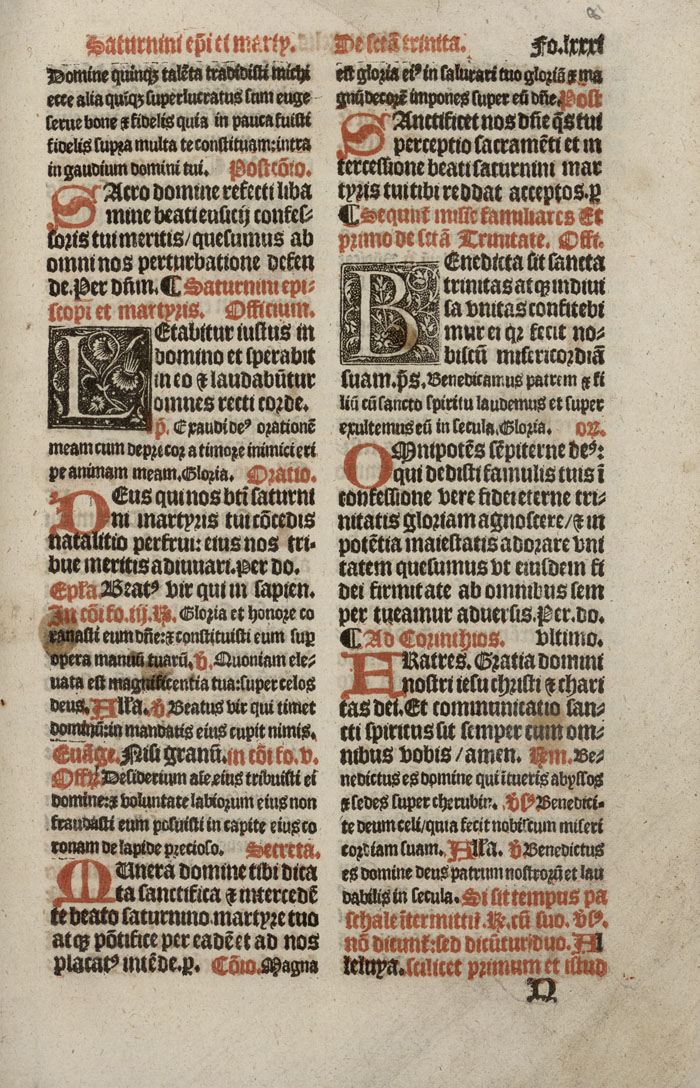 Saturnini epĩ et marty.
De sctã trinita.
Fo.lxxxi
Domine quinqꝫ talẽta tradidisti michi
ecce alia quĩqꝫ superlucratus sum euge
serue bone ⁊ fidelis quia in pauca fuisti
fidelis supra multa te constituam:intra
in gaudium domini tui. Postcõio.
SAcro domine refecti liba
mine beati eusicij confes⸗
soris tui meritis/quesumus ab
omni nos perturbatione defen
de.Per dñm. ¶ Saturnini epi⸗
scopi et martyris. Officium.
LEtabitur iustus in
domino et sperabit
in eo ⁊ laudabũtur
omnes recti corde.
p̃. Exaudi deꝰ orationẽ
meam cum deprecor a timore inimici eri
pe animam meam.Gloria. Oratio.
DEus qui nos bti saturni
ni martyris tui cõcedis
natalitio perfrui: eius nos tri⸗
bue meritis adiuuari.Per do.
Epl̃a Beatꝰ vir qui in sapien.
In cõi fo.iij.℞. Gloria et honore co
ronasti eum dñe:⁊ constituisti eum sup̱
opera manuũ tuarũ. ℣. Quoniam ele⸗
uata est magnificentia tua:super celos
deus. All̃a. ℣. Beatus vir qui timet
dominũ:in mandatis eius cupit nimis.
Euãge. Nisi granũ. in cõi fo.v.
Offr̃. Desiderium aĩe eius tribuisti ei
domine:⁊ voluntate labiorum eius non
fraudasti eum posuisti in capite eius co
ronam de lapide precioso. Secreta.
MUnera domine tibi dica
ta sanctifica ⁊ intercedẽ
te beato saturnino martyre tuo
atqꝫ põtifice per eadẽ et ad nos
placatꝰ intẽde.p̱. Cõio. Magna
est gloria eiꝰ in salutari tuo gloriã ⁊ ma
gnũ decorẽ impones super eũ dñe. Post
SAnctificet nos dñe q̃s tui
perceptio sacramẽti et in
tercessione beati saturnini mar
tyris tui tibi reddat acceptos.p̱
¶ Sequunẽ misse familiares Et
primo de sctã Trinitate. Offi.
BEnedicta sit sancta
trinitas atqꝫ indiui
sa vnitas confitebi
mur ei qꝛ fecit no⸗
biscũ misericordiã
suam.p̃s. Benedicamus patrem ⁊ fi
liũ cũ sancto spiritu laudemus et super
exultemus eũ in secula.Gloria. oꝛ.
OMnipotẽs sẽpiterne deꝰ:
qui dedisti famulis tuis ĩ
confessione vere fidei eterne tri⸗
nitatis gloriam agnoscere/⁊ in
potẽtia maiestatis adorare vni
tatem quesumus vt eiusdem fi
dei firmitate ab omnibus sem
per tueamur aduersis.Per.do.
¶ Ad Corinthios. vltimo.
FRatres. Gratia domini
nostri iesu christi ⁊ chari
tas dei. Et communicatio san⸗
cti spiritus sit semper cum om⸗
nibus vobis/amen. ℞m. Be⸗
nedictus es domine qui ĩtueris abyssos
⁊ sedes super cherubin. ℣s. Benedici⸗
te deum celi/quia fecit nobiscum miseri
cordiam suam. All̃a. ℣ Benedictus
es domine deus patrum nostrorũ et lau
dabilis in secula. Si sit tempus pa
schale ĩtermittiẽ.℞.cũ suo. ℣s.
nõ dicunẽ:sed dicũtur duo. Al
leluya. scilicet primum et istud
N